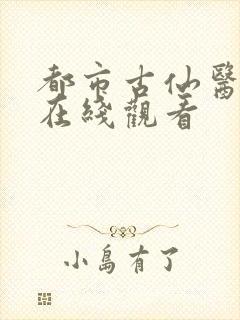 都市古仙醫
在綫觀看
小島有了